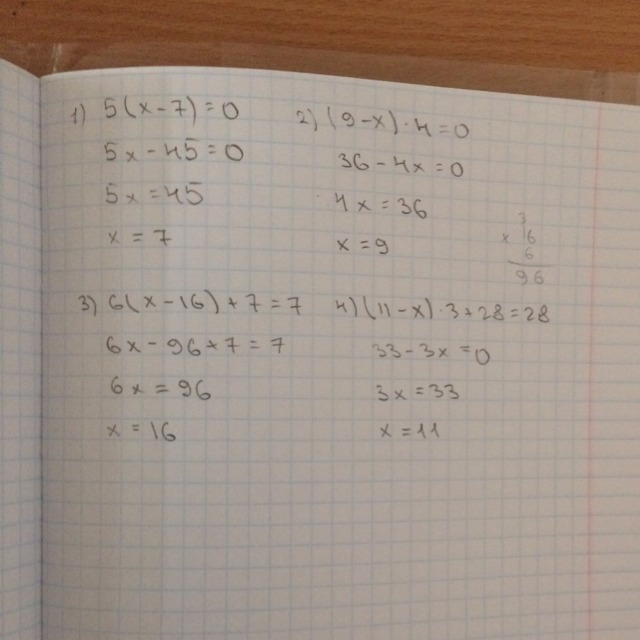 1) 5(x-7)=0
5x-45=0
5x=45
x=7
2) (9-x)·4=0
36-4x=0
4x=36
x=9
3
× 16
6
96
3) 6(x-16)+7=7
6x-96+7=7
6x=96
x=16
4) (11-x)·3+28=28
33-3x=0
3x=33
x=11